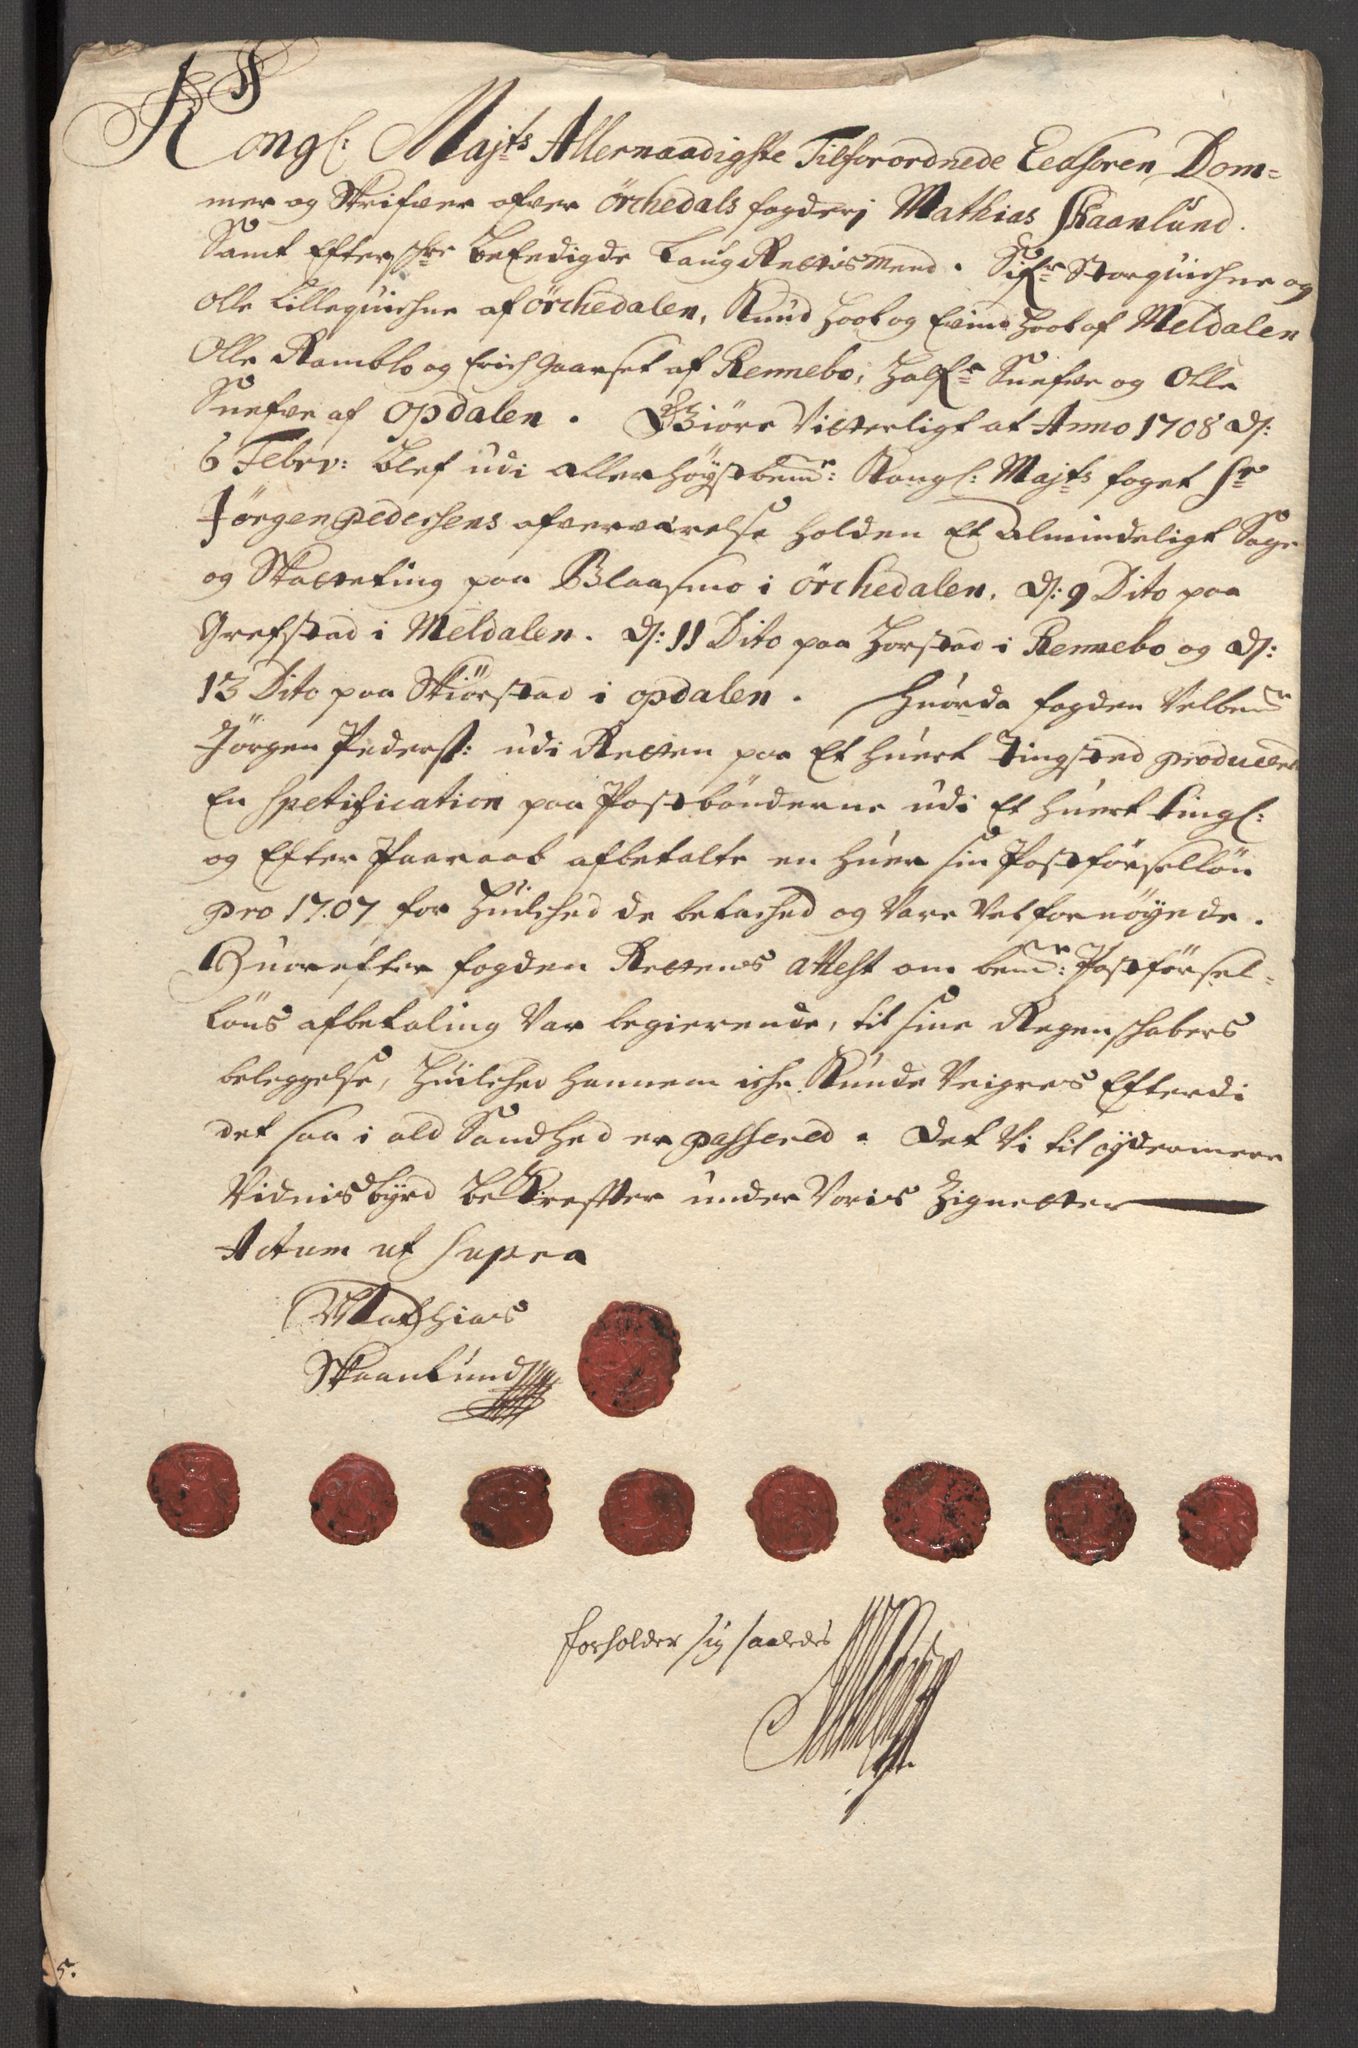 Kongl: Majts Allernaadigste Tilforordnede Eedsoren Dom=
mer og Skrifver ofver Örchedals fogderj Mathias Skaanlund.
Samt Efterschr: beEedigde LaugRettismend. Sifr Storquichne og
Olle Lillequichne af Örchedalen, Knud Hoel og Evind Hoel af Meldalen
Olle Ramblo og Erich Gaarset af Rennebo, Halfr Snefve og Olle
Snefve af Opdalen. Giöre Vitterligt at Anno 1708 d:
6 Febrv: blef udi allerhöystbemr: Kongl: Majts foget Sr
Jörgen Pedersens ofverværelse holden Et almindeligt Sage
og Skatteting paa Blaasmo i Örchedalen, d: 9 Dito paa
Grefstad i Meldalen. d: 11 Dito paa Horstad i Rennebo og d:
13 Dito paa Skiörstad i opdalen. Huorda fogden Velbemr
Jörgen Peders: udi Retten paa Et huert Tingsted producered
En Spetification paa Postbönderne udi Et huert tingl:
og Efter Paaraab afbetalte en huer sin Postförsellön
pro 1707 for Huilched de betached og Vare Vel fornöyede.
Huorefter fogden Rettens attest om bemr: Postförsel-
löns afbetaling Var begierende, til sine Regenschabers
beleggelse, Huilched hannem iche Kunde Veigres Efterdi
det saa i ald Sandhed er passered. Det Vi til ydermere
Vidnisbyrd beKreffter under Voris Zignetter
Actum ut supra
Mathias
Skaanlund
forholder sig saaledes
5.